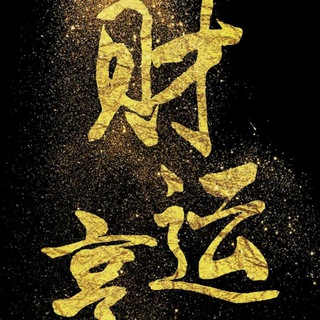 财运
亨